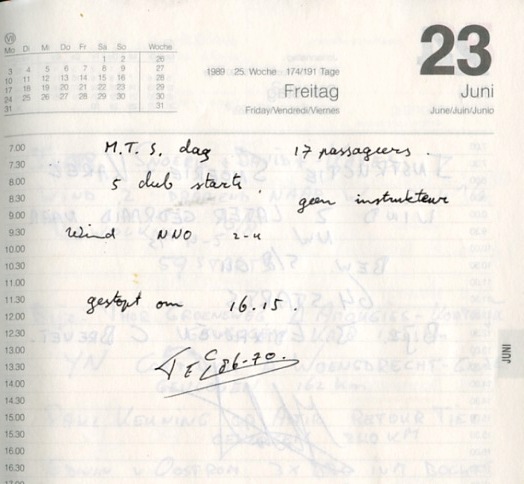 VII
Mo Di Mi Do Fr Sa So Woche
1 2 26
3 4 5 6 7 8 9 27
10 11 12 13 14 15 16 28
17 18 19 20 21 22 23 29
24 25 26 27 28 29 30 30
31 31
23
1989 25. Woche 174/191 Tage
Freitag
Juni
Friday/Vendredi/Viernes
June/Juin/Junio
7.00 M.T.S. dag 17 passagiers.
7.30
8.00 5 club starts.
8.30 geen instrukteur
9.00
9.30 Wind NNO 2-4
10.00
10.30
11.00
11.30 gestopt om 16.15.
12.00
12.30
13.00
13.30
14.00
14.30
15.00
15.30
16.00
16.30
17.00
JUNI